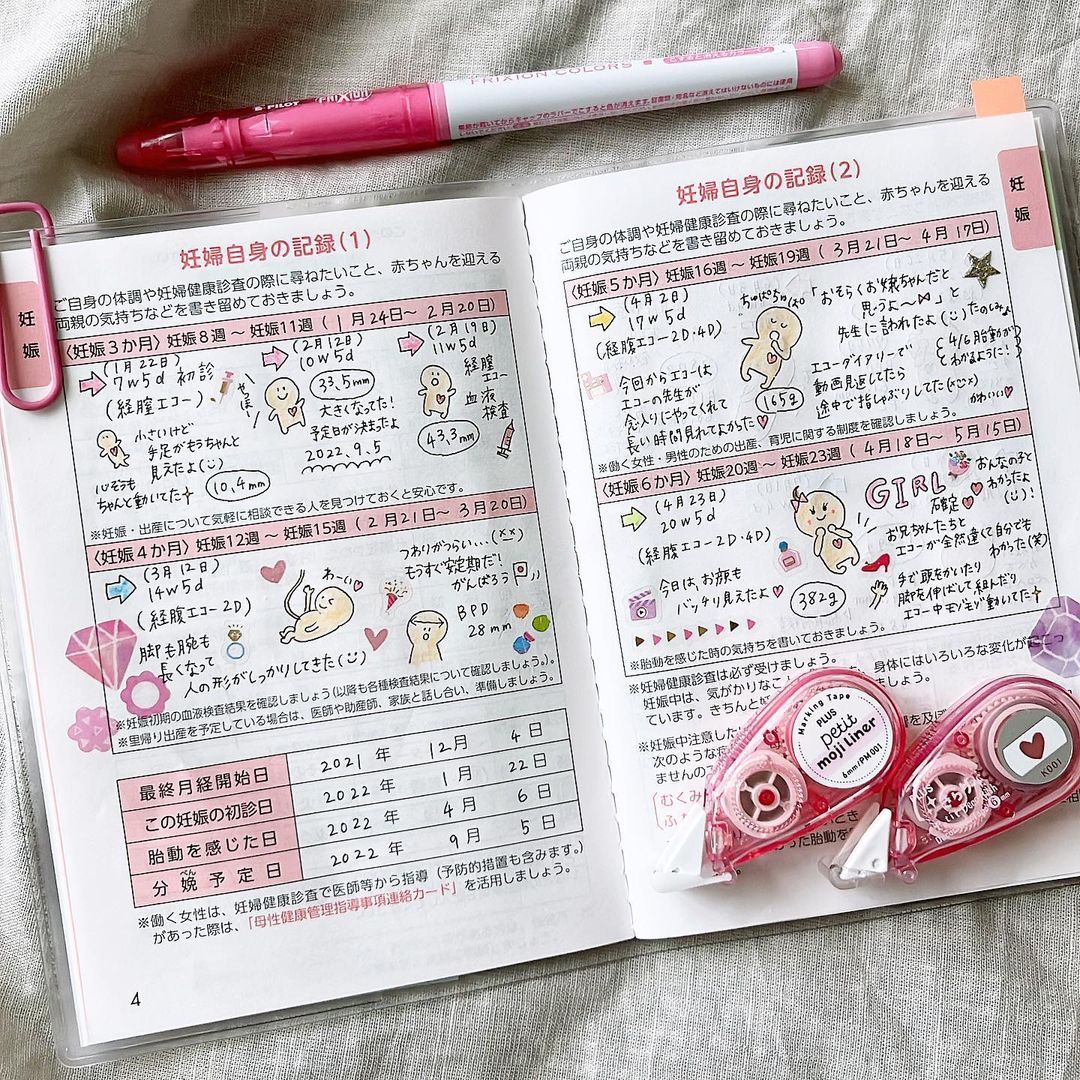 PILOT
FRIXION
FRIXION COLORS
妊娠
妊婦自身の記録(1)
ご自身の体調や妊婦健康診査の際に尋ねたいこと、赤ちゃんを迎える
両親の気持ちなどを書き留めておきましょう。
〈妊娠3か月〉妊娠8週～妊娠11週(1月24日～2月20日)
(1月22日)
7w5d 初診
(経膣エコー)
小さいけど
手足がもうちゃんと
見えたよ(:)
心ぞうも
ちゃんと動いてた
10.4mm
やっほー
(2月12日)
10w5d
33.5mm
大きくなってた!
予定日が決まったよ
2022.9.5
(2月19日)
11w5d
経膣
エコー
血液
検査
43.3mm
※妊娠・出産について気軽に相談できる人を見つけておくと安心です。
〈妊娠4か月〉妊娠12週～妊娠15週(2月21日～3月20日)
(3月12日)
14w5d
(経腹エコー2D)
脚も腕も
長くなって
人の形がしっかりしてきた(:)
わーい
つわりがつらい...(××)
もうすぐ安定期だ!
がんばろう
BPD
28mm
※妊娠初期の血液検査結果を確認しましょう(以降も各種検査結果について確認しましょう。)。
※里帰り出産を予定している場合は、医師や助産師、家族と話し合い、準備しましょう。
最終月経開始日 2021年 12月 4日
この妊娠の初診日 2022年 1月 22日
胎動を感じた日 2022年 4月 6日
分娩予定日 2022年 9月 5日
べん
※働く女性は、妊婦健康診査で医師等から指導(予防的措置も含みます。)
があった際は、「母性健康管理指導事項連絡カード」を活用しましょう。
4
妊婦自身の記録(2)
妊娠
ご自身の体調や妊婦健康診査の際に尋ねたいこと、赤ちゃんを迎える
両親の気持ちなどを書き留めておきましょう。
〈妊娠5か月〉妊娠16週～妊娠19週(3月21日～4月17日)
(4月2日)
17w5d
(経腹エコー2D・4D)
今回からエコーは
エコーの先生が
念入りにやってくれて
長い時間見れてよかった
ちゅぱちゅぱ
165g
「おそらくお嬢ちゃんだと
思うよ～」と
先生に言われたよ(:)たのしみ
4/6 胎動が
わかるように!
エコーダイアリーで
動画見返してたら
途中で指しゃぶりしてた
かわいい
※働く女性・男性のための出産、育児に関する制度を確認しましょう。
〈妊娠6か月〉妊娠20週～妊娠23週(4月18日～5月15日)
(4月23日)
20w5d
(経腹エコー2D・4D)
今日は、お顔も
バッチリ見えたよ
382g
GIRL
確定
おんなの子と
わかったよ
(:)!
お兄ちゃんたちと
エコーが全然違くて自分でも
わかった(笑)
手で頭をかいたり
脚を伸ばして組んだり
エコー中モゾモゾ動いてた
※胎動を感じた時の気持ちを書いておきましょう。
※妊婦健康診査は必ず受けましょう。
妊娠中は、気がかりなこ
身体にはいろいろな変化が
ています。きちんと
※妊娠中注意した
次のような
ませんの
「むくみ
Marking Tape
PLUS
petit
moji liner
6mm/PM001
K001